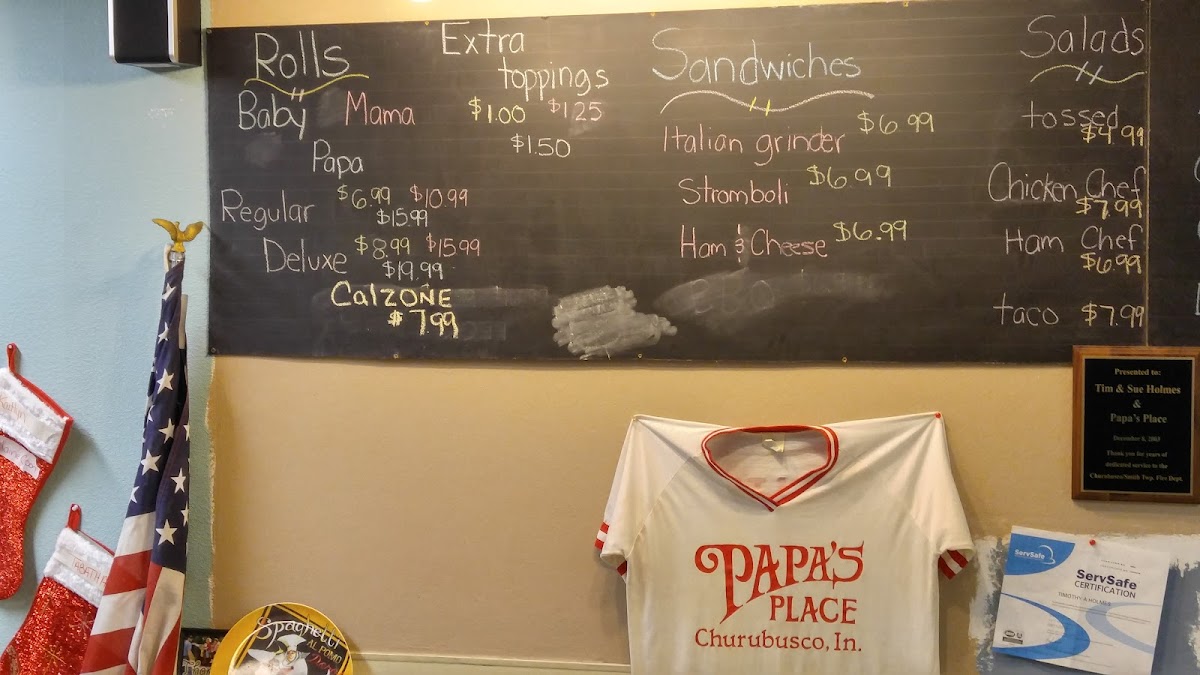 Rolls
Baby Mama
Papa
Regular $6.99 $10.99
$15.99
Deluxe $8.99 $15.99
$19.99
CalZONE
$7.99
Extra
toppings
$1.00 $1.25
$1.50
Sandwiches
Italian grinder $6.99
Stromboli $6.99
Ham & Cheese $6.99
Salads
tossed
$4.99
Chicken Chef
$7.99
Ham Chef
$6.99
taco $7.99
Presented to:
Tim & Sue Holmes
&
Papa's Place
December 8, 2003
Thank you for years of
dedicated service to the
Churubusco/Smith Twp. Fire Dept.
PAPA'S
PLACE
Churubusco, In.
ServSafe
ServSafe
CERTIFICATION
TIMOTHY A HOLMES
Spaghetti
AL POMO